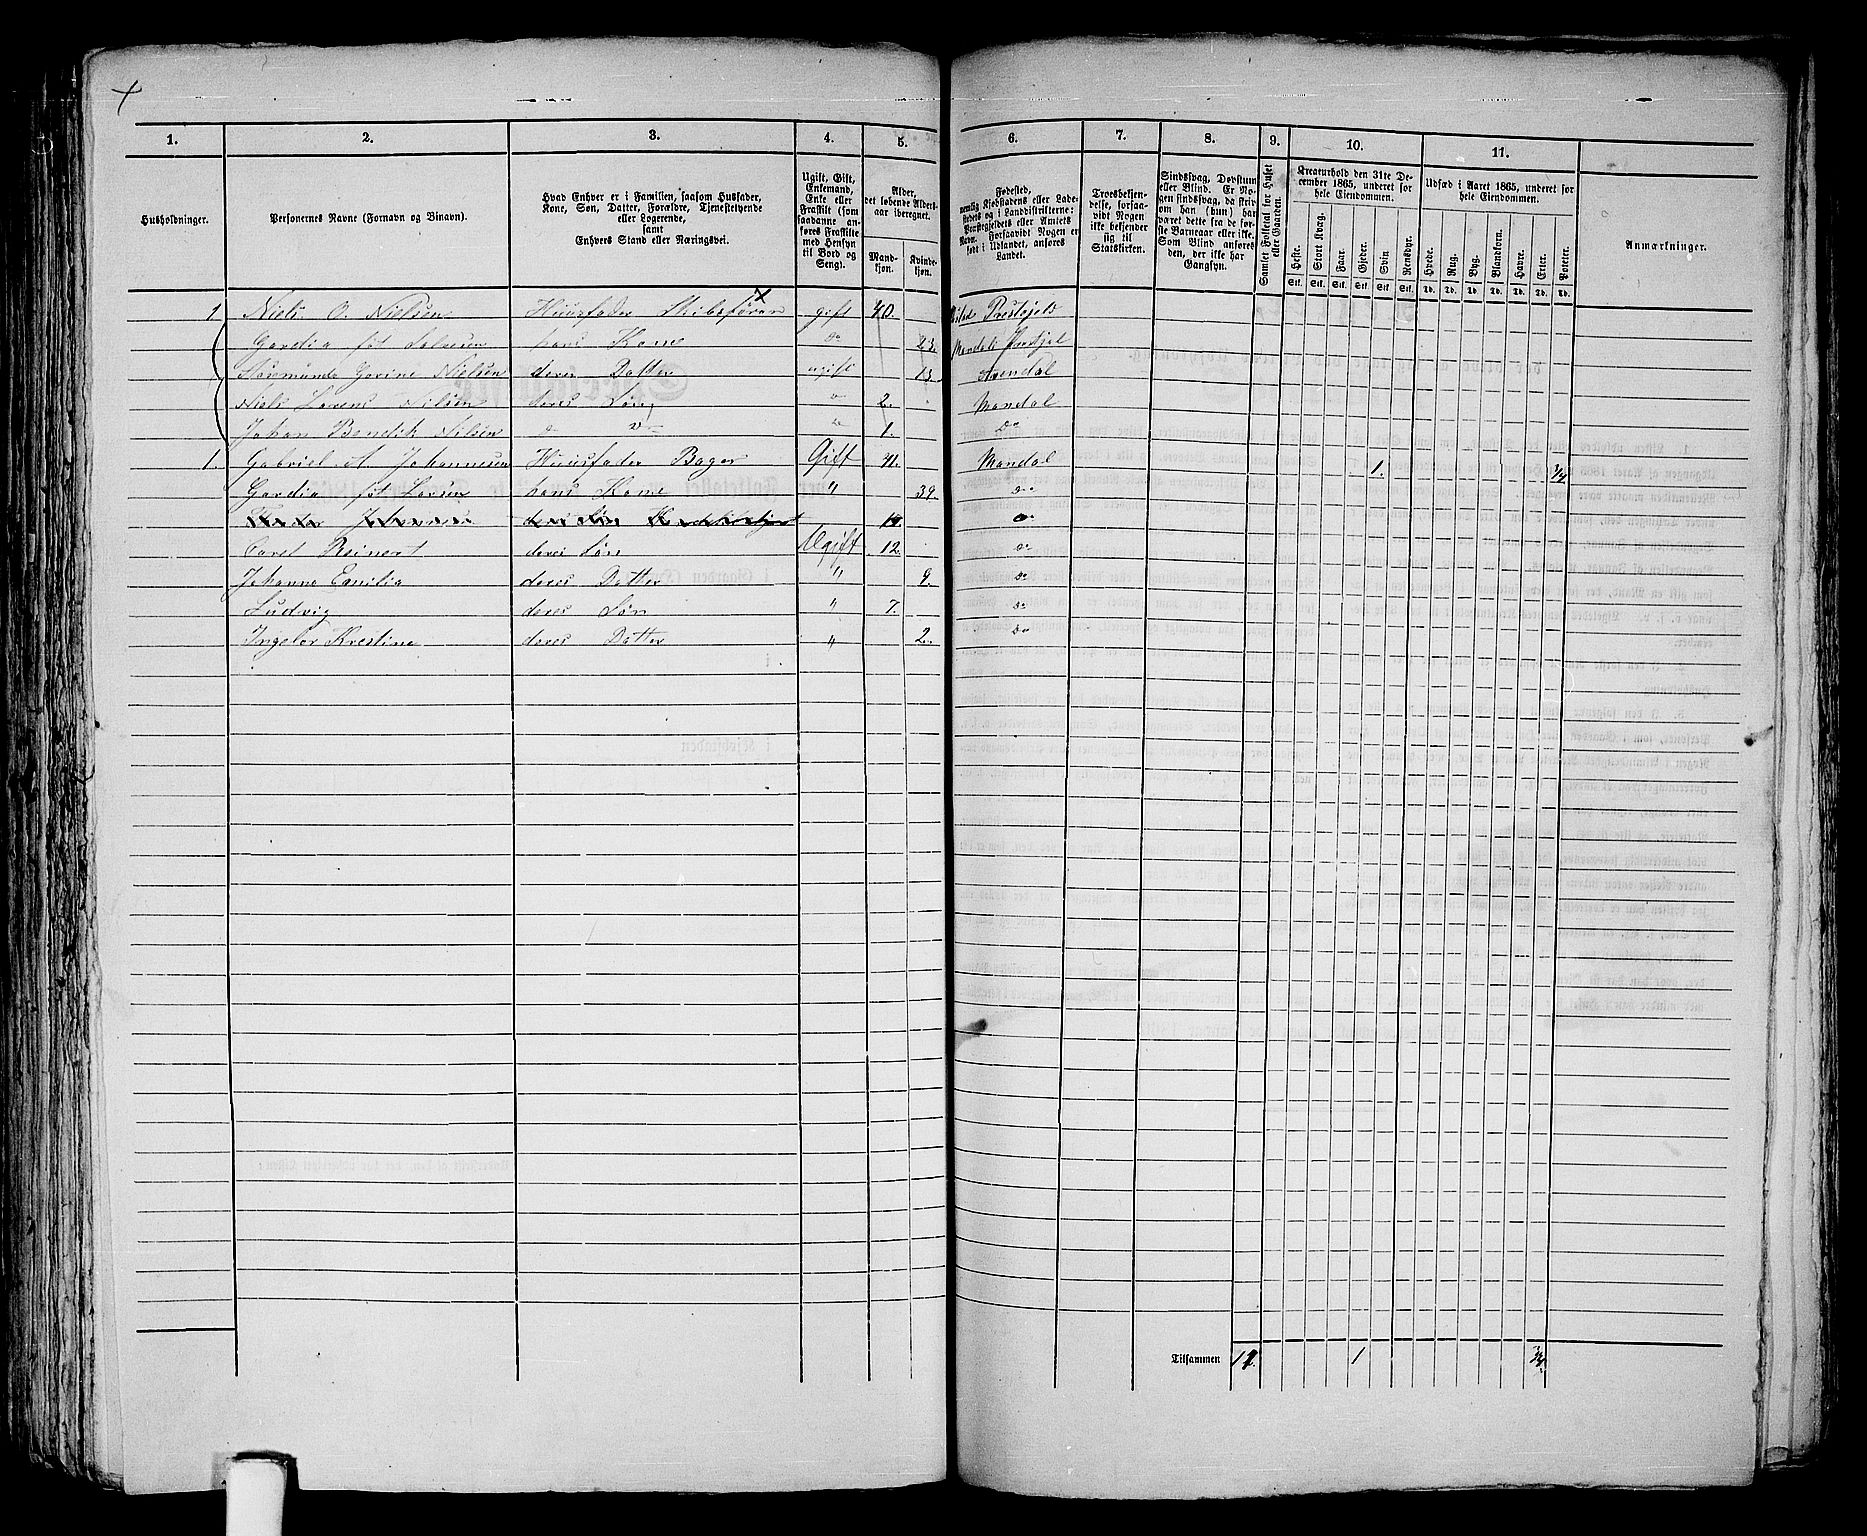 1. 2. 3. 4. 5. 6. 7. 8. 9. 10. 11.
Husholdninger.
Personernes Navne (Fornavn og Binavn).
Hvad Enhver er i Familien, saasom Husfader, Kone, Søn, Datter, Forældre, Tjenestetyende eller Logerende, samt Enhvers Stand eller Næringsvei.
Ugift, Gift, Enkemand, Enke eller Fraskilt (som saadanne anføres Fraskilte med Hensyn til Bord og Seng).
Alder, det løbende Aldersaar iberegnet.
Mandkjøn. Kvindekjøn.
Fødested, nemlig Kjøbstadens eller Ladestedets og i Landdistrikterne: Præstegjeldets eller Amtets Navn. Forsaavidt Nogen er født i Udlandet, anføres Landet.
Troesbekjendelse, forsaavidt Nogen ikke bekjender sig til Statskirken.
Sindssvag, Døvstum eller Blind. Er Nogen sindssvag, da skrives om han (hun) har været dette fra de første Barneaar eller ikke. Som Blind anføres den, der ikke har Gangsyn.
Samlet Folketal for Huset eller Gaarden.
Kreaturhold den 31te December 1865, underet for hele Eiendommen.
Heste. Stort Kvæg. Faar. Gjeder. Svin Rensdyr.
Stk. Stk. Stk. Stk. Stk. Stk.
Udsæd i Aaret 1865, underet for hele Eiendommen.
Hvede. Rug. Byg. Blandkorn. Havre. Erter. Poteter.
Td. Td. Td. Td. Td. Td. Td.
Anmærkninger.
1. Niels O. Nielsen Huusfader Skibsfører gift 40. Prestejeld
Gardia født Salvesen hans Kone do 23. Mandals Prestjel
Gorine Nielsen deres Datter ugift 13. Arendal
Niels Lorens Nilsen deres Søn do 2. Mandal
Johan Bendik Nilsen do do do 1. Do
1. Gabriel A. Johannesen Huusfader Bager Gift 41. Mandal 1. 3/4
Gardia født Larsen hans Kone " 39. do
deres Søn 19. do
Carel Reinert deres Søn Ugift 12 do
Johanna Emilia deres Datter " 9. do
Ludvig deres Søn " 7. do
Ingebor Krestine deres Datter " 2. Do
Tilsammen 1 3/4